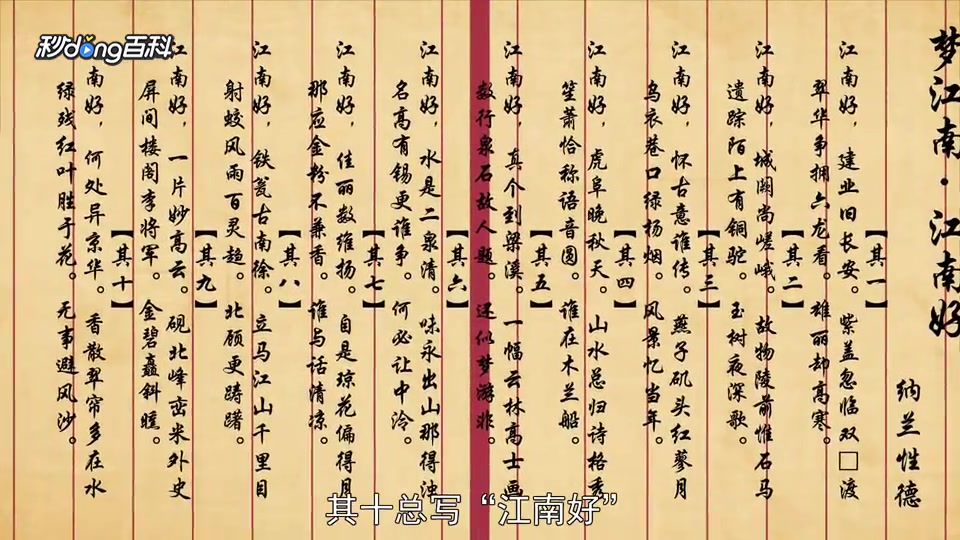 梦江南·江南好
纳兰性德
【其一】
江南好，建业旧长安。紫盖忽临双□渡
翠华争拥六龙看。雄丽却高寒。
【其二】
江南好，城阙尚嵯峨。故物陵前惟石马
遗踪陌上有铜驼。玉树夜深歌。
【其三】
江南好，怀古意谁传。燕子矶头红蓼月
乌衣巷口绿杨烟。风景忆当年。
【其四】
江南好，虎阜晚秋天。山水总归诗格秀
笙萧恰称语音圆。谁在木兰船。
【其五】
江南好，真个到梁溪。一幅云林高士画
数行泉石故人题。还似梦游非。
【其六】
江南好，水是二泉清。味永出山那得浊
名高有锡更谁争。何必让中泠。
【其七】
江南好，佳丽数维扬。自是琼花偏得月
那应金粉不兼香。谁与话清凉。
【其八】
江南好，铁瓮古南徐。立马江山千里目
射蛟风雨百灵趋。北顾更踌躇。
【其九】
江南好，一片妙高云。砚北峰峦米外史
屏间楼阁李将军。金碧矗斜曛。
【其十】
南好，何处异京华。香散翠帘多在水
绿残红叶胜于花。无事避风沙。
秒dong百科
其十总写“江南好”